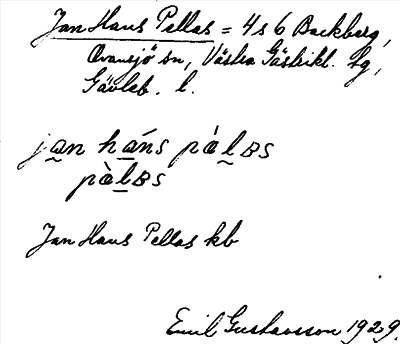 Jan Hans Pellas = 4 s 6 Backberg,
Ovansjö sn, Västra Gästrikl. hg,
Gävleb. l.
jan háns pǻlʙs
pàlʙs
Jan Hans Pellas kb
Emil Gustavsson 1929.